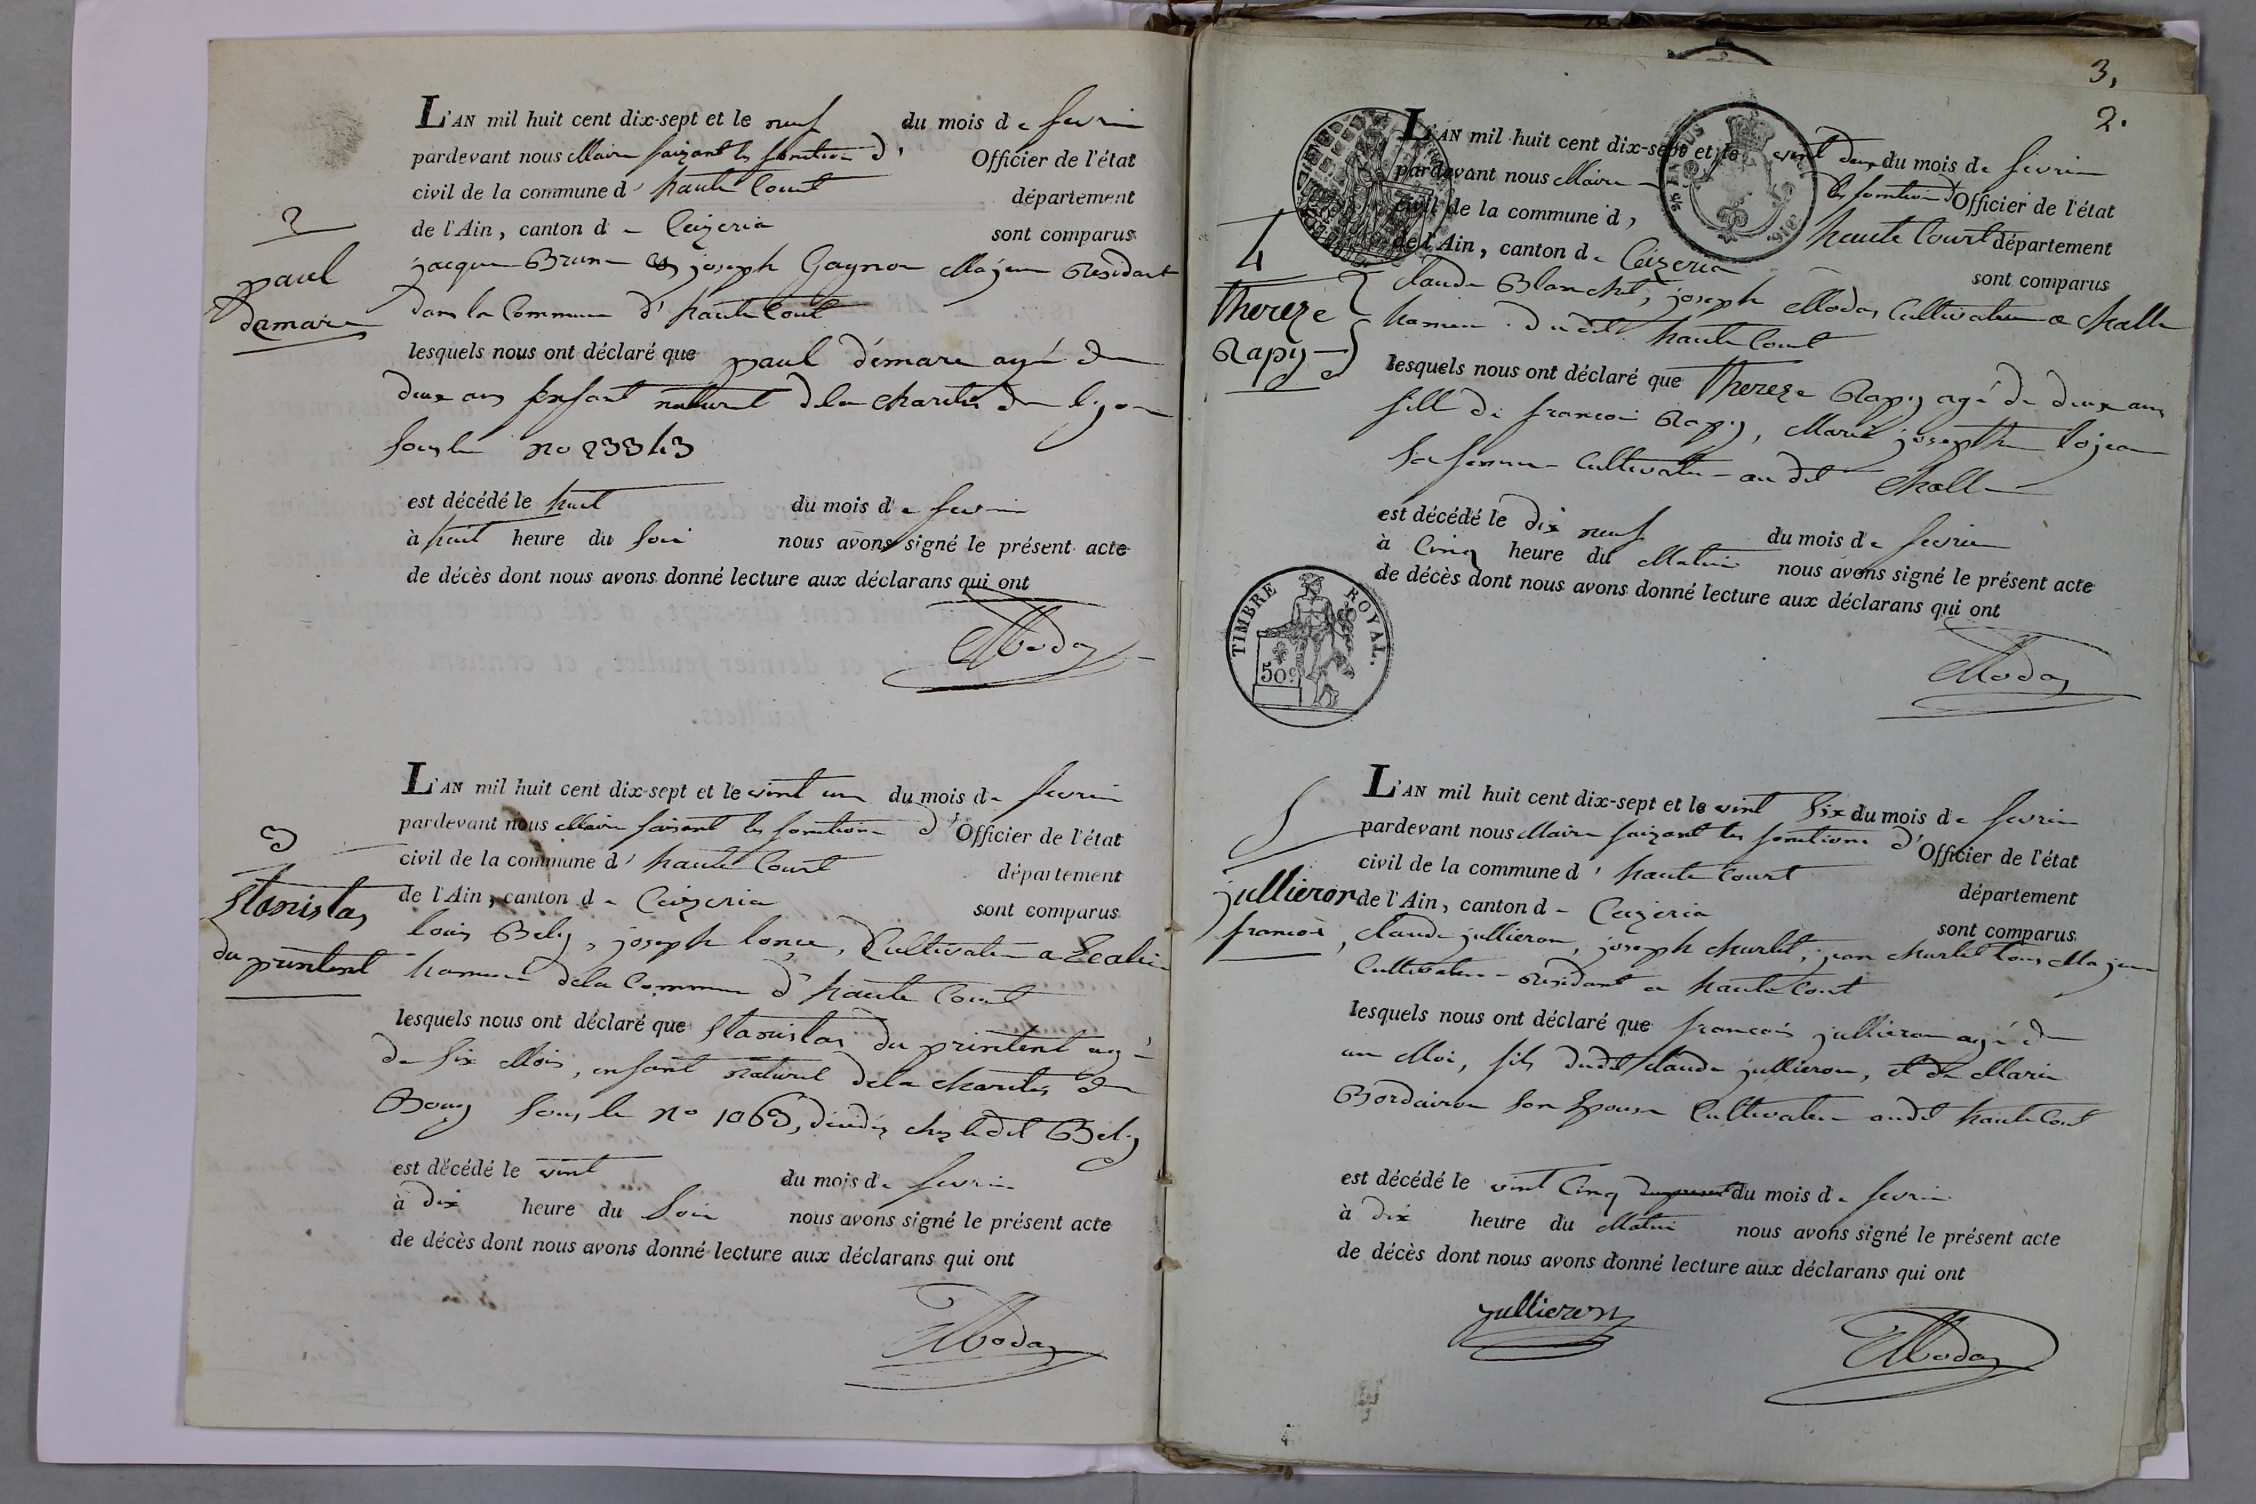 2
paul
damare
L'AN mil huit cent dix-sept et le neuf du mois de fevrie
pardevant nous Maire faizant les fonction d' Officier de l'état
civil de la commune d' haute Court département
de l'Ain, canton de Ceizeria sont comparus
jacque Brun et joseph Gagnon Majeur Residant
dans la Commune d' haute Court
lesquels nous ont déclaré que paul démare agé de
deux ans Enfant naturel dela charitée de lyon
sous le no 23343
est décédé le huit du mois de fevrie
à huit heure du soir nous avons signé le présent acte
de décès dont nous avons donné lecture aux déclarans qui ont
Moda
3
Stanislas
du printent
L'AN mil huit cent dix-sept et le vint un du mois de fevrie
pardevant nous Maire faisant les fonctions d' Officier de l'état
civil de la commune d' haute Court département
de l'Ain, canton de Ceizeria sont comparus
louis Bely, joseph, Cultivateur a
hameau dela Commune d' haute Court
lesquels nous ont déclaré que Stanislas du printent agé
de six Mois, enfant naturel dela charitée de
Bourg sous le no 1063, décédé chez ledit Bely
est décédé le vint du mois de fevrie
à Dix heure du Soir nous avons signé le présent acte
de décès dont nous avons donné lecture aux déclarans qui ont
Moda
3,
2.
4
Thereze
Rapy
L'AN mil huit cent dix-sept et le vint deux du mois de fevrie
pardevant nous Maire les fonction d' Officier de l'état
civil de la commune d, haute Court département
de l'Ain, canton de Ceizeria sont comparus
Claude Blanchet, joseph Moda, Cultivateur a Challe
hameau dudit haute Court
lesquels nous ont déclaré que Thereze Rapy agé de deux ans
fille de francoi Rapy, Marie josepthe lojean
sa femme Cultivateur audit Challe
est décédé le dix neuf du mois de fevrie
à Cinq heure du Matin nous avons signé le présent acte
de décès dont nous avons donné lecture aux déclarans qui ont
Moda
TIMBRE ROYAL.
50c
5
jullieron
francois
L'AN mil huit cent dix-sept et le vint six du mois de fevrie
pardevant nous Maire faizant les fonctions d' Officier de l'état
civil de la commune d' haute Court département
de l'Ain, canton de Ceizeria sont comparus
Claude jullieron, joseph Murlet, jean Murlet tous Majeur
Cultivateur Residant a haute Court
lesquels nous ont déclaré que francois jullieron agé de
un Moi, fils dudit Claude jullieron, et de Marie
Bordairon son Epouse Cultivateur audit haute Court
est décédé le vint Cinq du mois de fevrie
à Dix heure du Matin nous avons signé le présent acte
de décès dont nous avons donné lecture aux déclarans qui ont
jullieron
Moda